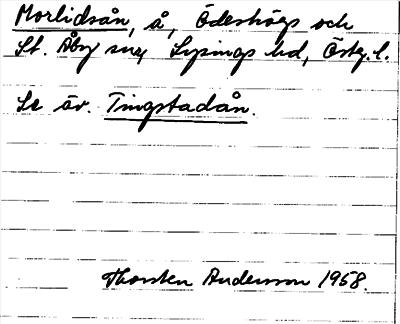 Morlidsån, å, Ödeshögs och
St. Åby snr, Lysings hd, Östg. l.
Se äv. Tingstadån.
Thorsten Andersson 1958.